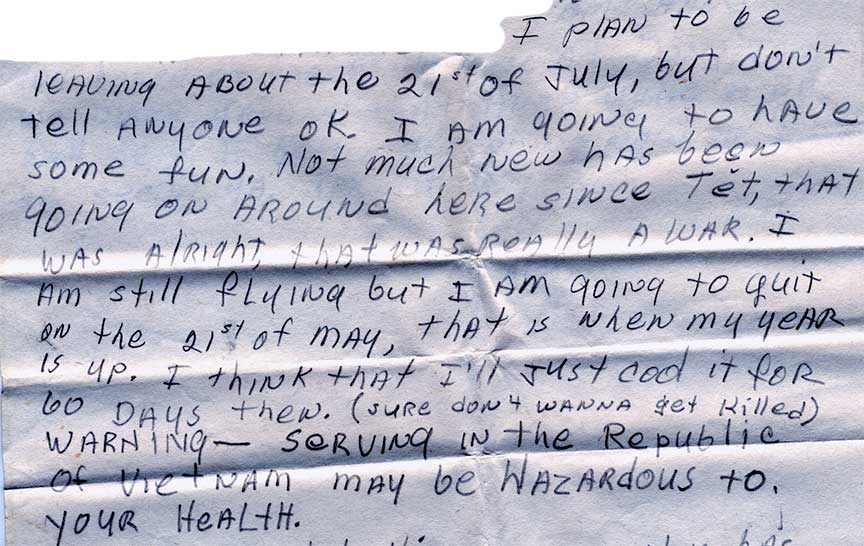 I plan to be
leaving about the 21st of July, but don't
tell anyone ok. I am going to have
some fun. Not much new has been
going on around here since Tet, that
was alright, that was really a war. I
am still flying but I am going to quit
on the 21st of may, that is when my year
is up. I think that I'll just cool it for
60 days then. (sure don't wanna get killed)
WARNING— Serving in the Republic
of Vietnam may be Hazardous to.
your Health.
has